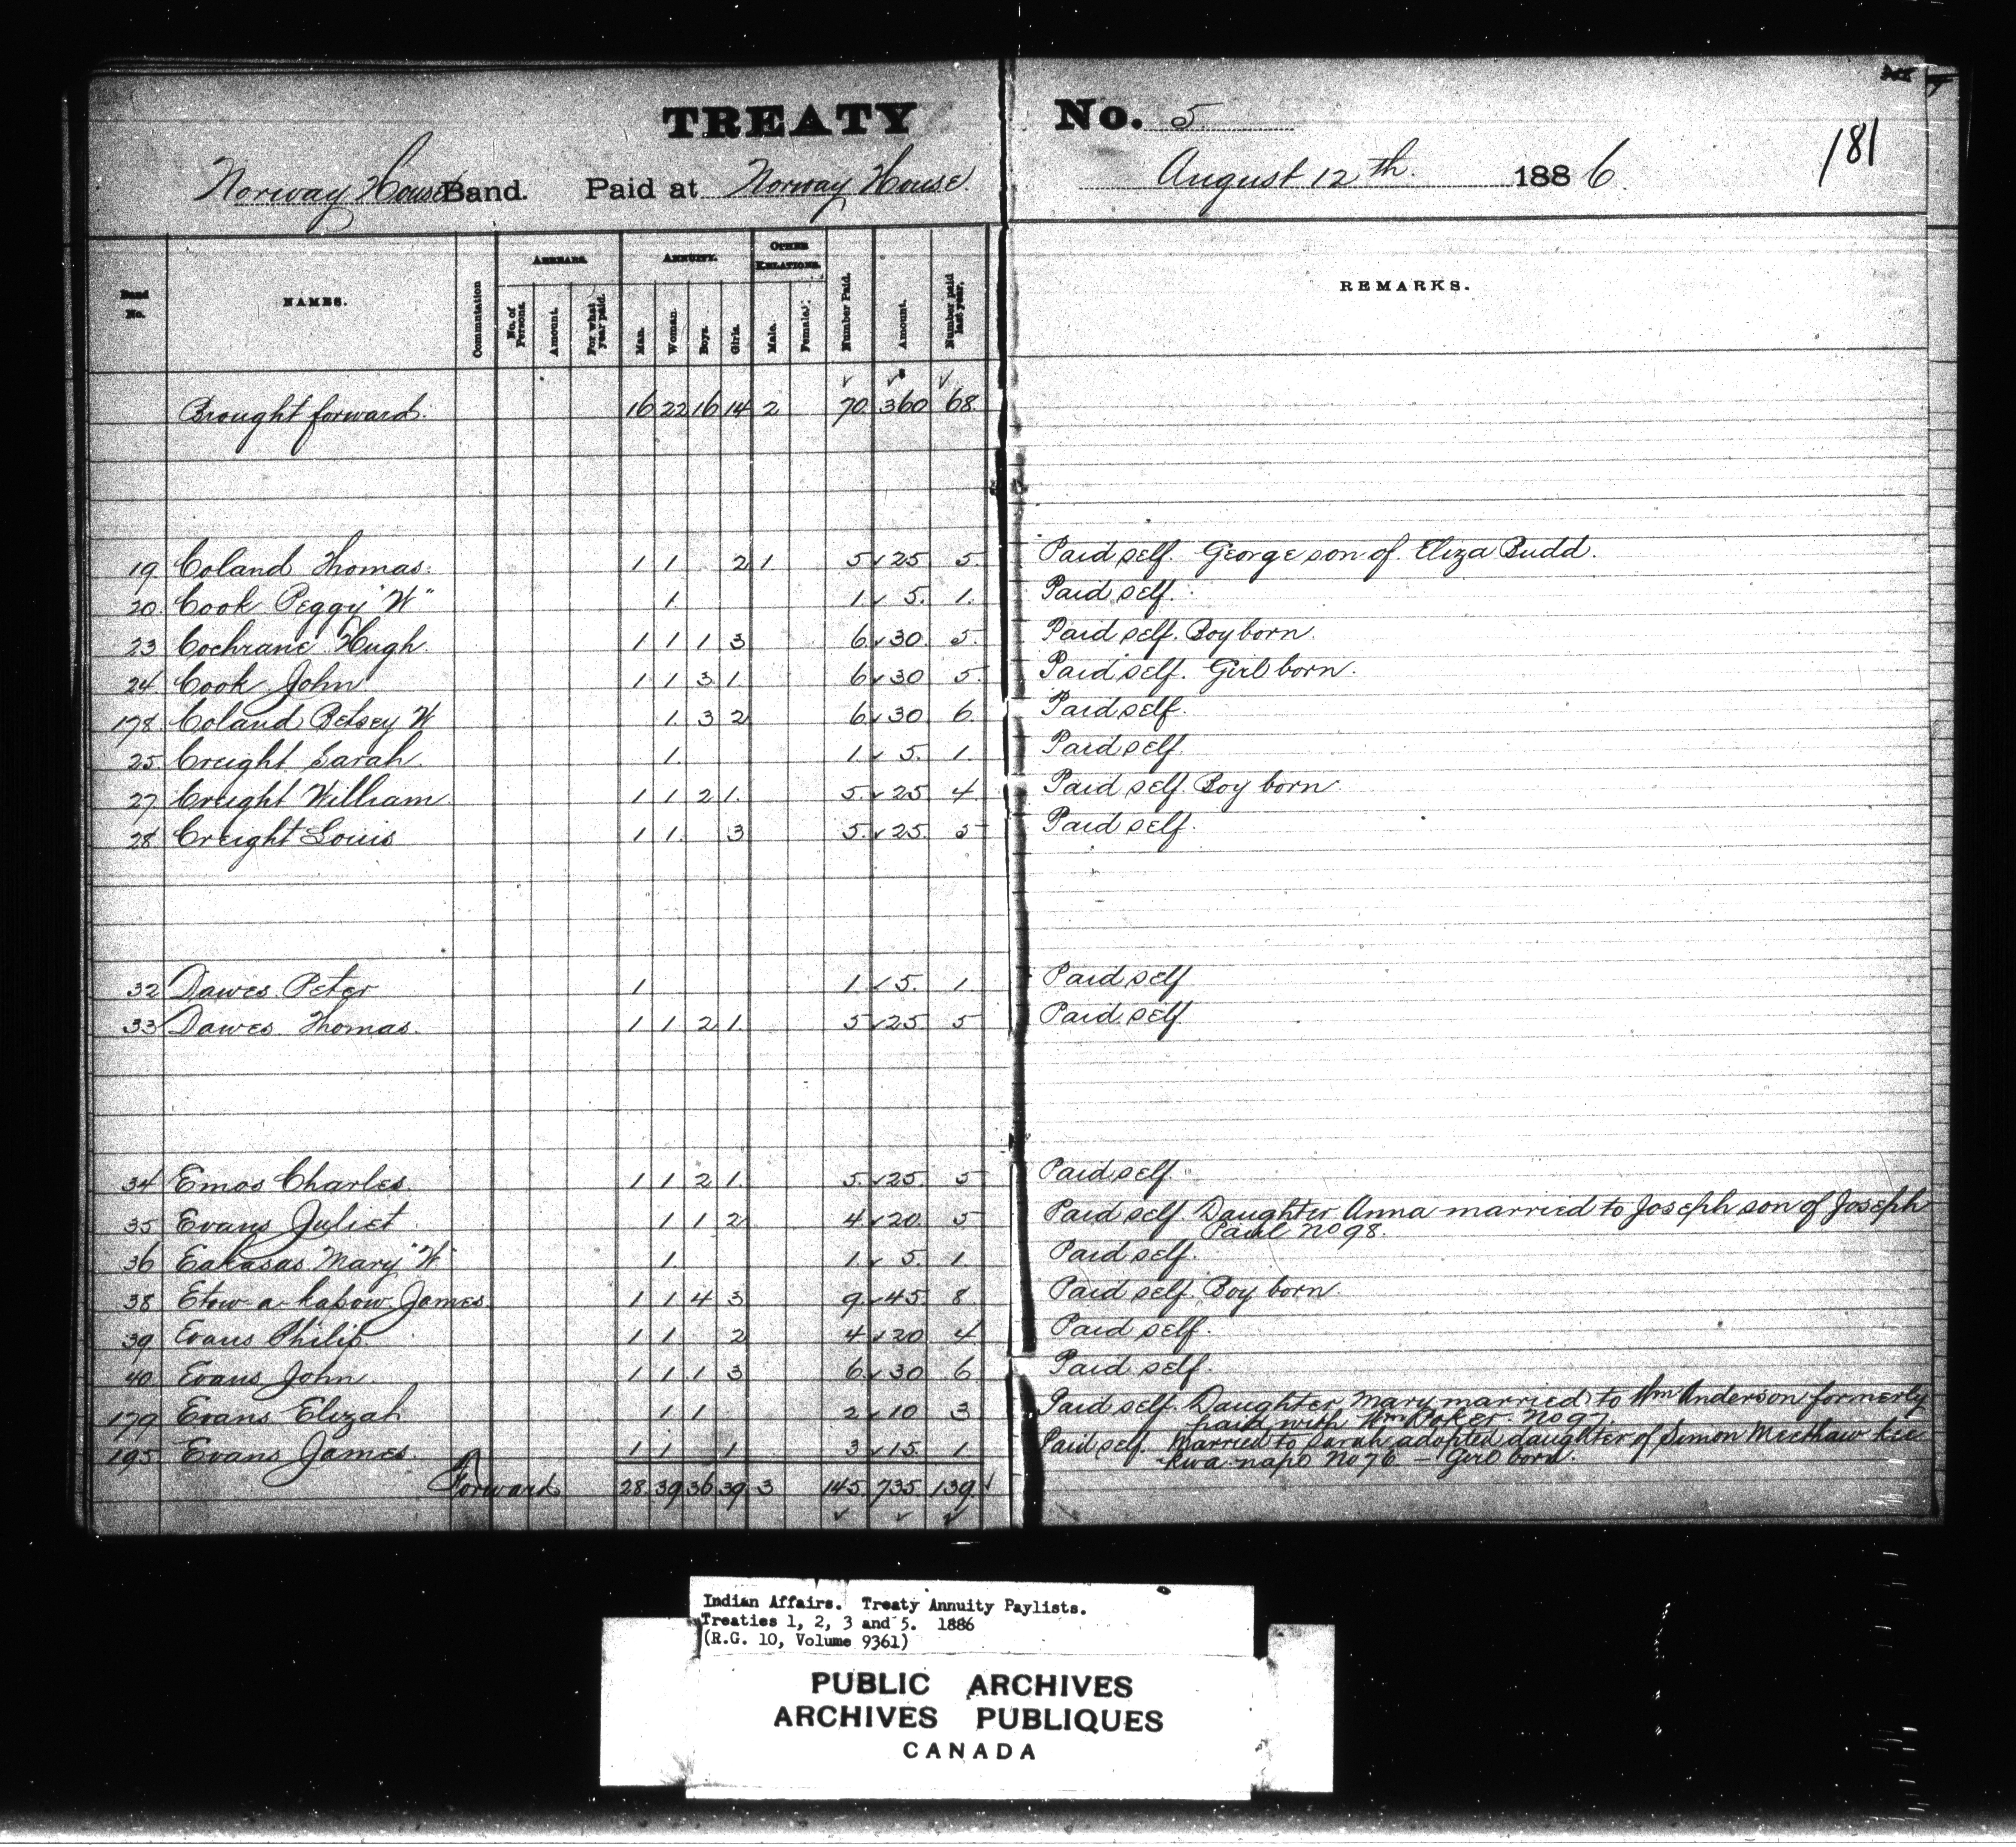 TREATY No. 5
181
Norway House Band. Paid at Norway House August 12th. 1886.
Band No. NAMES. Commutation ARREARS. No. of Persons. Amount. For what year paid. ANNUITY. Man. Woman. Boys. Girls. OTHER RELATIONS. Male. Female. Number Paid. Amount. Number paid last year. REMARKS.
Brought forward. 16 22 16 14 2 70 360 68
19 Coland Thomas. 1 1 2 1 5 25 5 Paid self. George son of Eliza Budd.
20 Cook Peggy "W" 1 1 5 1 Paid self.
23 Cochrane Hugh 1 1 1 3 6 30 5 Paid self. Boy born.
24 Cook John 1 1 3 1 6 30 5 Paid self. Girl born.
178 Coland Betsey W 1 3 2 6 30 6 Paid self.
25 Creight Sarah. 1 1 5 1 Paid self.
27 Creight William 1 1 2 1 5 25 4 Paid self. Boy born
28 Creight Louis 1 1 3 5 25 5 Paid self.
32 Dawes Peter 1 1 5 1 Paid self
33 Dawes Thomas. 1 1 2 1 5 25 5 Paid self
34 Emos Charles 1 1 2 1 5 25 5 Paid self.
35 Evans Juliet 1 1 2 4 20 5 Paid self. Daughter Anna married to Joseph son of Joseph
Paul No 98.
36 Eakasas Mary "W" 1 1 5 1 Paid self.
38 Etow-a-kabow James 1 1 4 3 9 45 8 Paid self. Boy born.
39 Evans Philip. 1 1 2 4 20 4 Paid self.
40 Evans John 1 1 1 3 6 30 6 Paid self.
179 Evans Elizah 1 1 2 10 3 Paid self. Daughter Mary married to Wm Anderson formerly
paid with Wm Poker No 97.
195 Evans James. 1 1 1 3 15 1 Paid self. Married to Sarah adopted daughter of Simon Meethaw kee
kwa napo No 76 - Girl born.
Forward 28 39 36 39 3 145 735 139
Indian Affairs. Treaty Annuity Paylists.
Treaties 1, 2, 3 and 5. 1886
(R.G. 10, Volume 9361)
PUBLIC ARCHIVES
ARCHIVES PUBLIQUES
CANADA